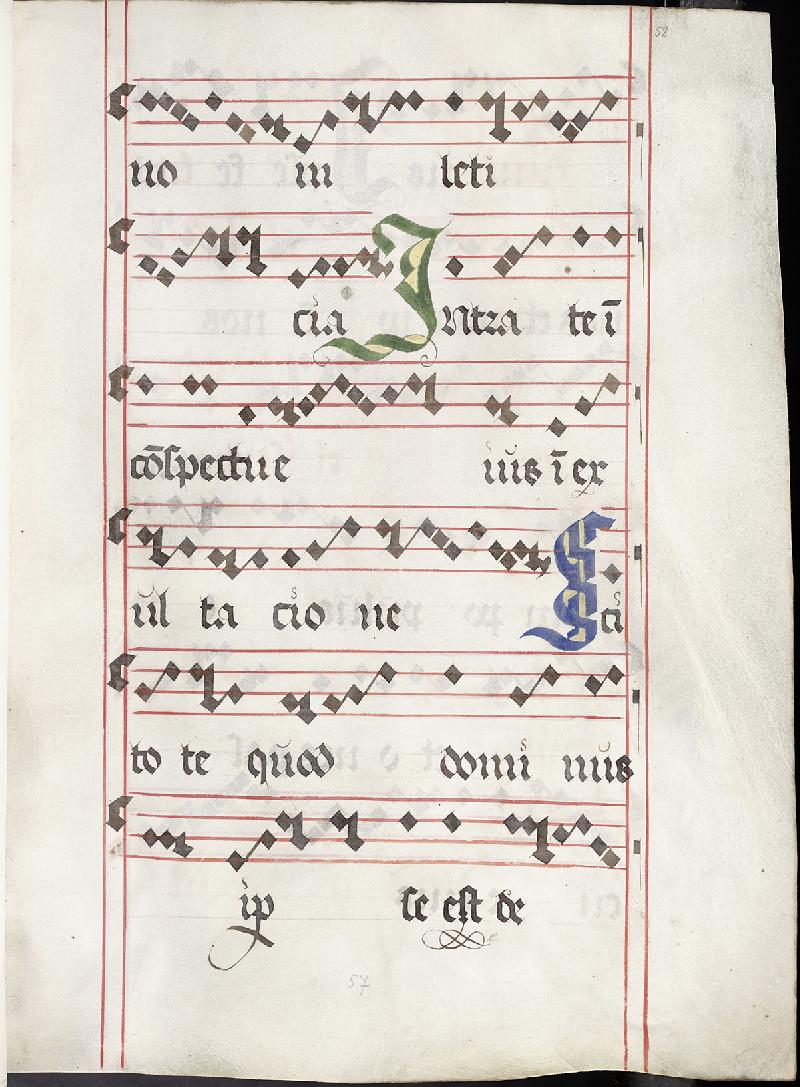 58
no in leti
cia Intra te ī
cōspectu e ius ī ex
ul ta cio ne Sci
to te quod domi nus
ip se est de
57